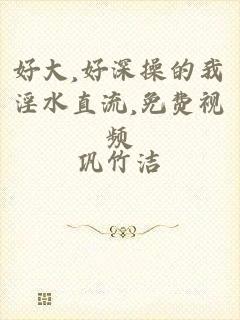 好大,好深操的我
淫水直流,免费视
频
巩竹洁